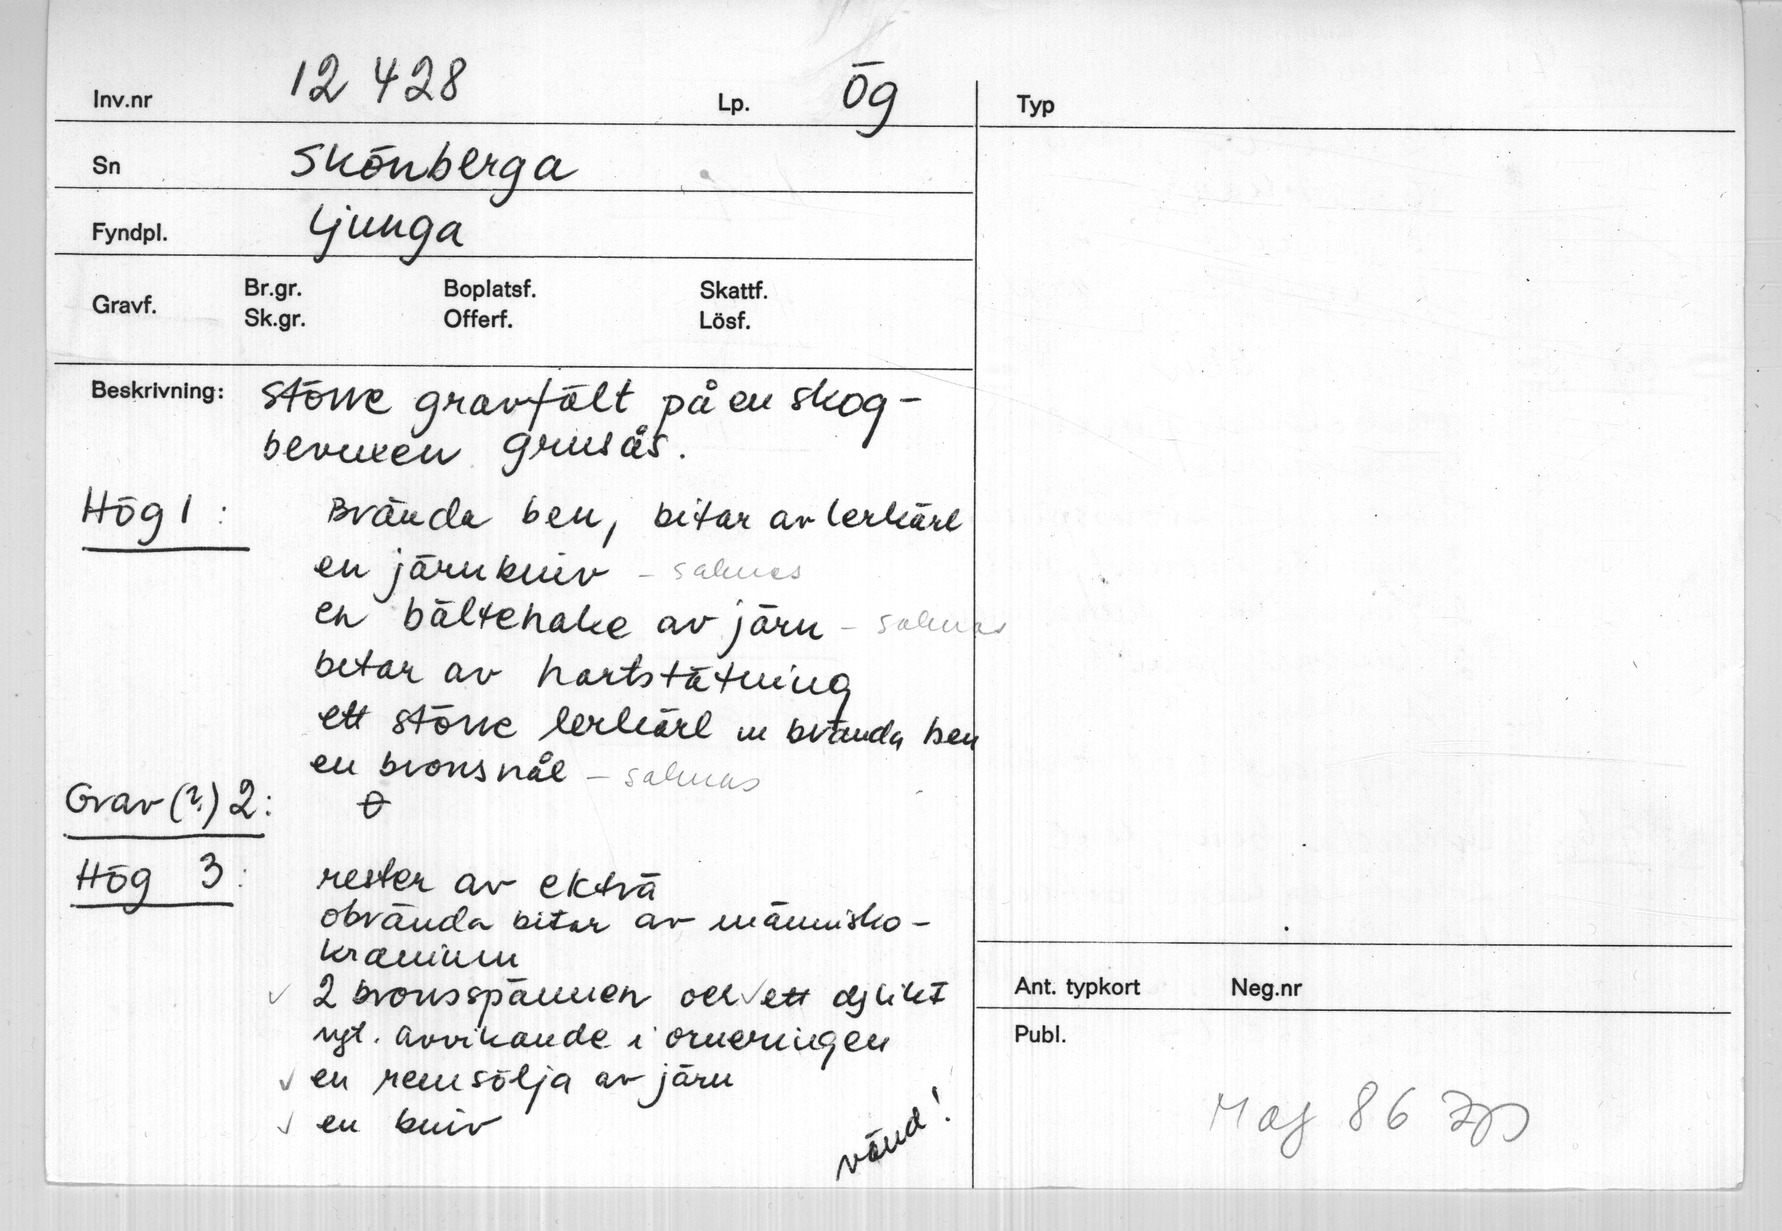 Inv.nr 12 428 Lp. Ög
Sn Skönberga
Fyndpl. Ljunga
Gravf. Br.gr. Boplatsf. Skattf.
Sk.gr. Offerf. Lösf.
Beskrivning: större gravfält på en skog-
bevuxen grusås.
Hög 1: Brända ben, bitar av lerkärl
en järnkniv - saknas
en bältehake av järn - saknas
bitar av hartstätning
ett större lerkärl m brända ben
en bronsnål - saknas
Grav (?) 2: θ
Hög 3: rester av ekträ
obrända bitar av människo-
kranium
✓ 2 bronsspännen och ✓ ett dylikt
ngt. avvikande i orneringen
✓ en remsölja av järn
✓ en kniv
vänd!
Typ
Ant. typkort Neg.nr
Publ.
Maj 86